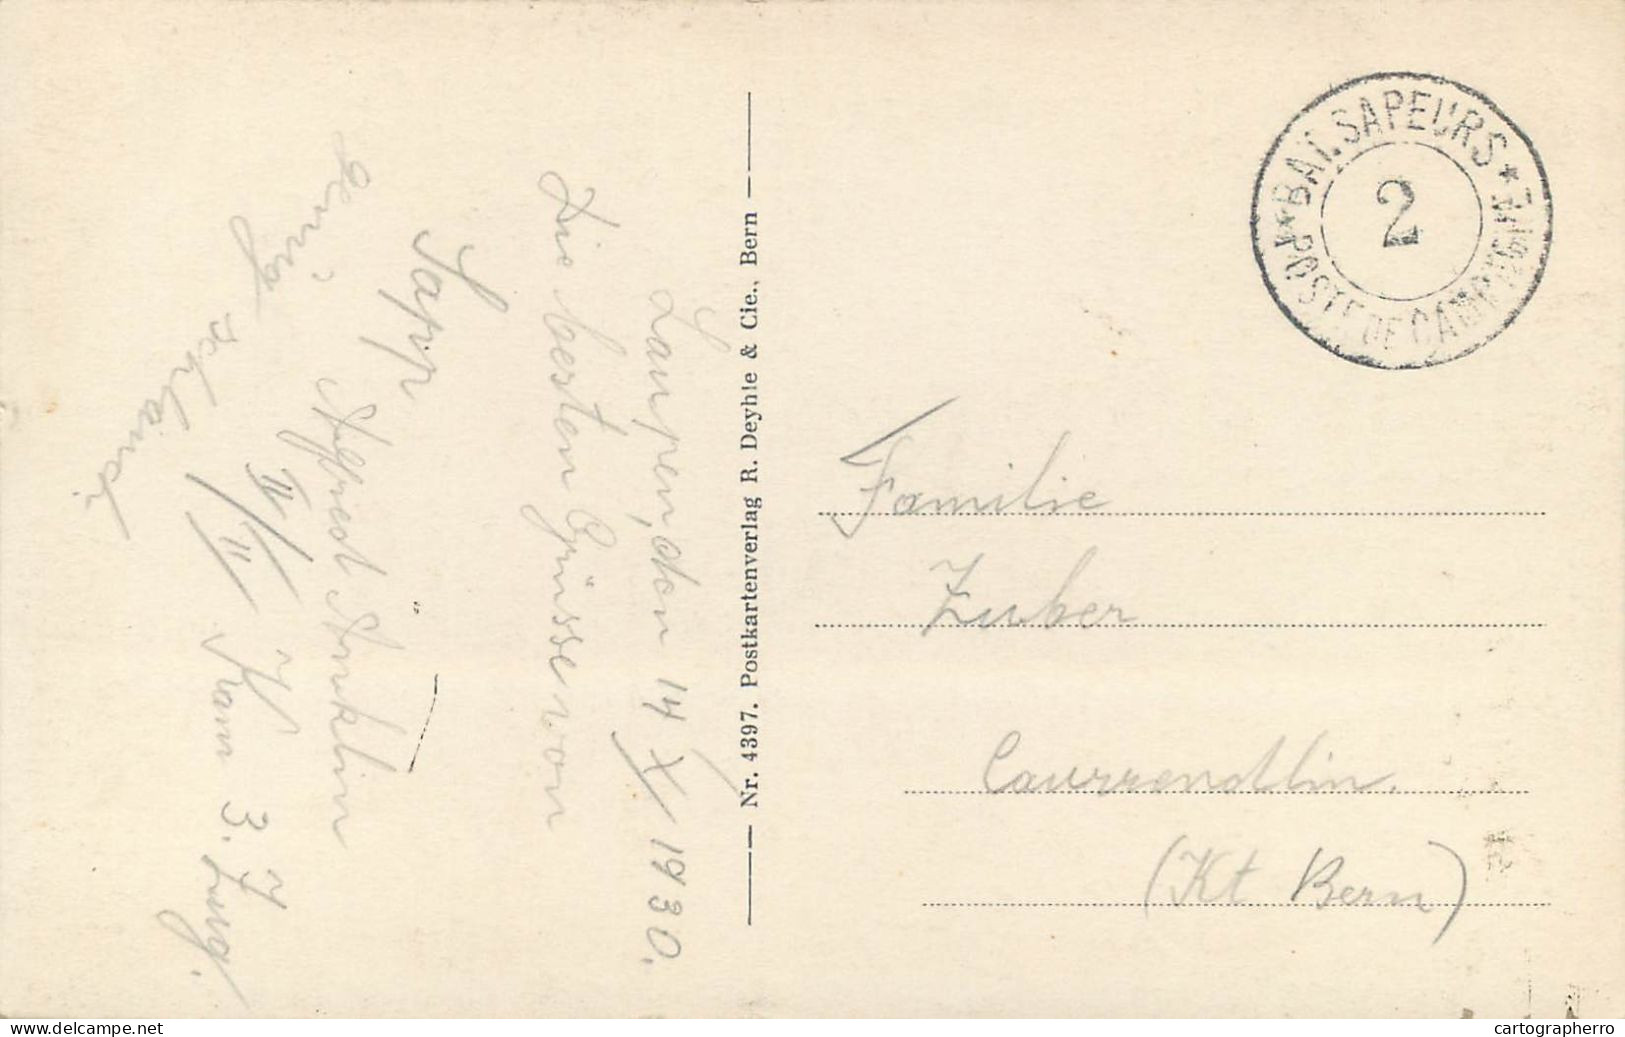 Laupen, den 14 X/ 1930.
Die besten Grüsse von
Sapp
Alfred Amklin
II/II
3. Zug.
Nr. 4397. Postkartenverlag R. Deyhle & Cie., Bern
BAT. SAPEURS
2
POSTE DE CAMPAGNE
Familie
Zuber
Courrendlin.
(Kt Bern)
Visit delcampe.net
cartographerro